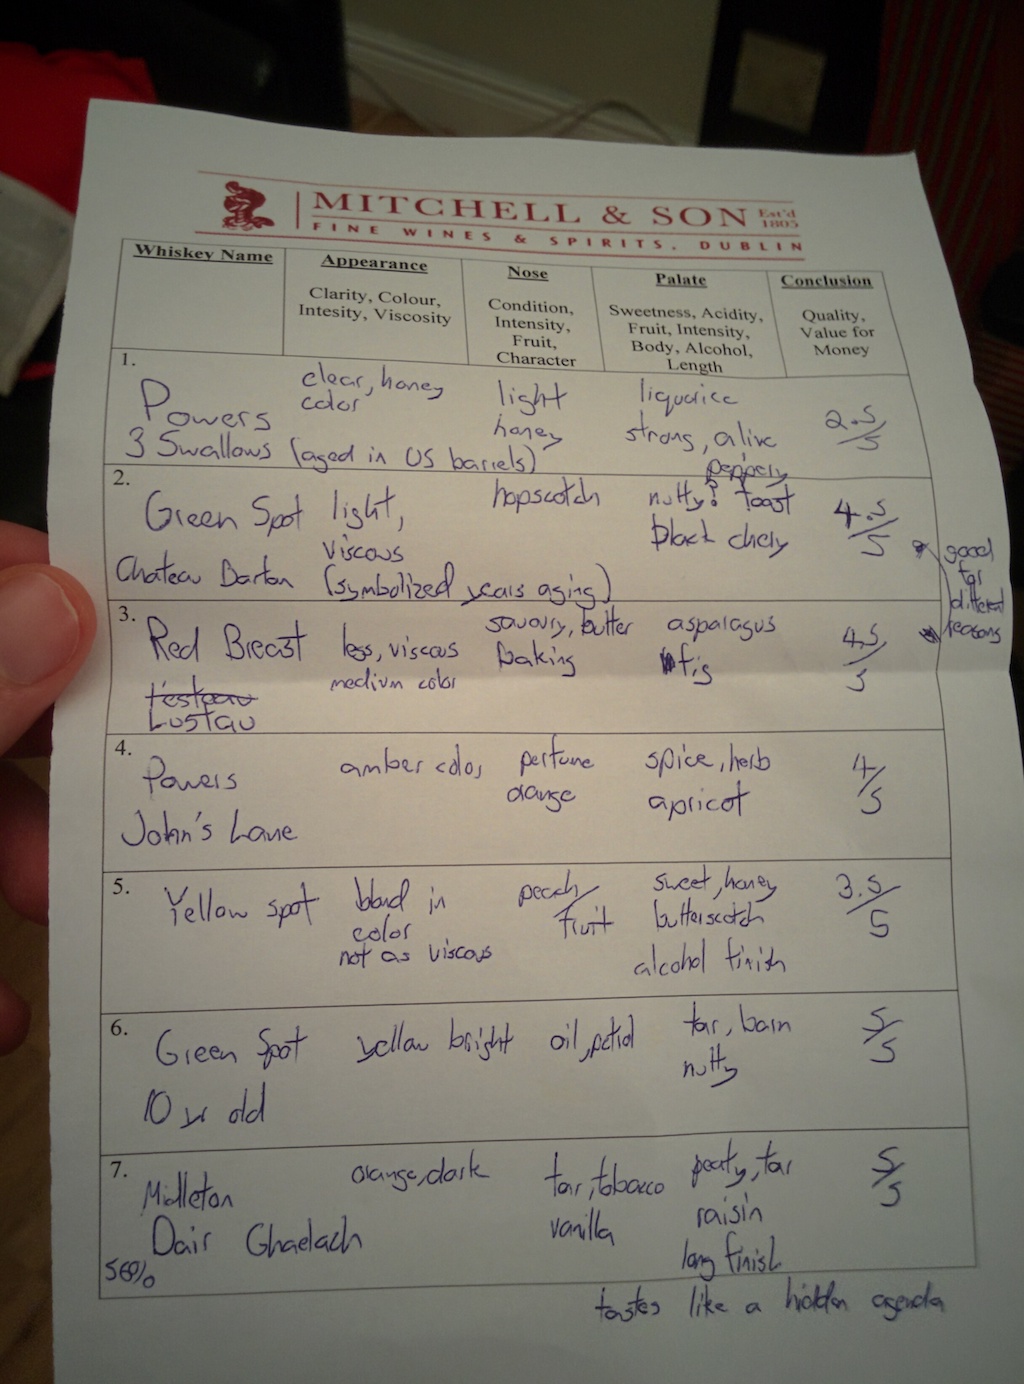 MITCHELL & SON Est'd 1805
FINE WINES & SPIRITS. DUBLIN
Whiskey Name
Appearance
Clarity, Colour,
Intesity, Viscosity
Nose
Condition,
Intensity,
Fruit,
Character
Palate
Sweetness, Acidity,
Fruit, Intensity,
Body, Alcohol,
Length
Conclusion
Quality,
Value for
Money
1.
Powers
3 Swallows (aged in US barrels)
clear, honey
color
light
honey
liquorice
strong, alive
peppery
2.5/5
2.
Green Spot
Chateau Barton (symbolized years aging)
light,
viscous
hopscotch
nutty? toast
black chery
4.5/5
good
for
different
reasons
3.
Red Breast
Lustau
less, viscous
medium color
savoury, butter
baking
asparagus
fig
4.5/5
4.
Powers
John's Lane
amber color
perfume
orange
spice, herb
apricot
4/5
5.
Yellow Spot
in
color
not as viscous
peach/
fruit
sweet, honey
butterscotch
alcohol finish
3.5/5
6.
Green Spot
10 yr old
yellow bright
oil, petrol
tar, barn
nutty
5/5
7.
Midleton
Dair Ghaelach
56%
orange, dark
tar, tobacco
vanilla
peaty, tar
raisin
long finish
5/5
tastes like a hidden agenda